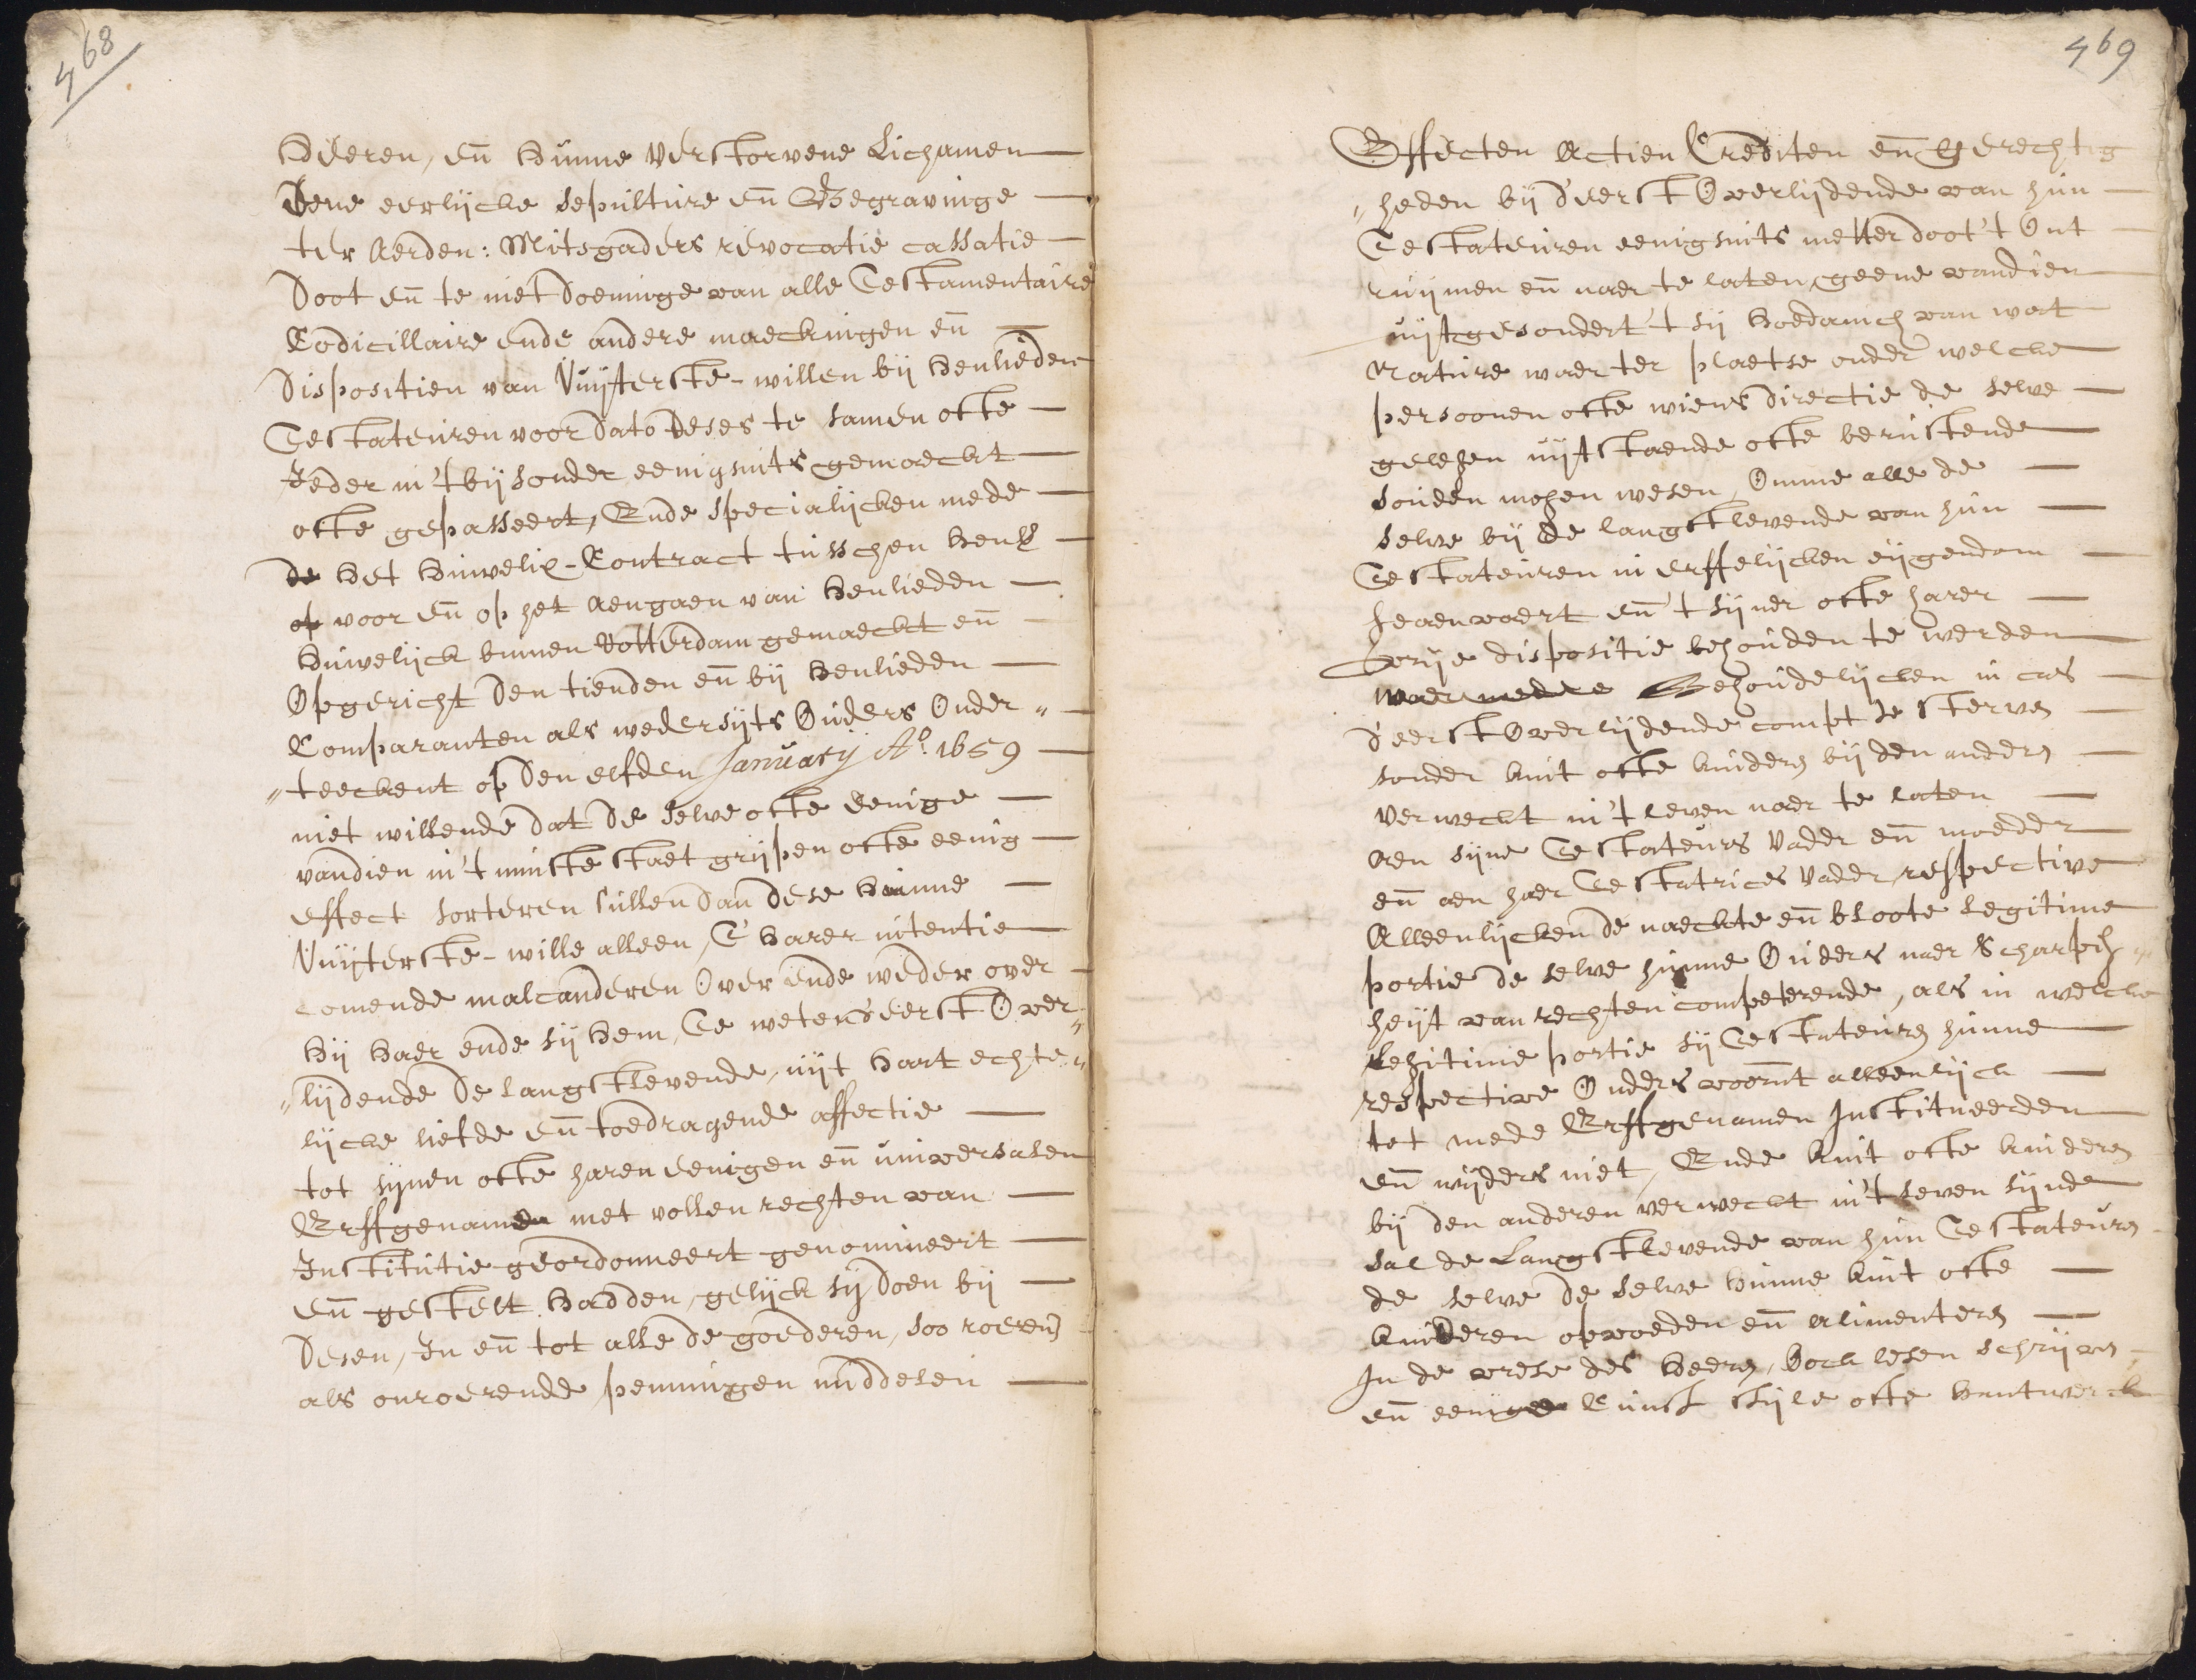 468
Heeren, en̄ hunne verstorvene Lichamen
Eene eerlijcke sepulture en̄ Begravinge
ter Aerden: Mitsgaders revocatie cassatie
Doot en̄ te niet Doeninge van alle Testamentaire
Codicillaire ende andere maeckingen en̄
Dispositien van Vuijterste-willen bij henlieden
Testateuren voor Dato deses te samen ofte
Jeder in't bijsonder eenigsints gemaeckt
ofte gepasseert, Ende specialijcken mede
de het Huwelix-Contract tusschen henl
op voor en̄ op het Aengaen van henlieden
Huwelijck binnen Rotterdam gemaeckt en̄
Opgericht Den tienden en̄ bij henlieden
Comparanten als wedersijts Ouders Onder"
"teeckent op Den elfden January Ao. 1659
niet willende Dat De selve ofte eenige
vandien in't minste staet grijpen ofte eenig
effect sorteren sullen Dan dese hunne
Vuijterste-wille alleen, T' harer intentie
comende malcanderen Over ende weder over
Hij Haer ende sij hem, Te weten d'eerst Over"
"lijdende De langstlevende, uijt hart echte"
lijcke liefde en̄ toedragende affectie
tot sijnen ofte haren eenigen en̄ universalen
Erffgenamen met vollen rechten van
Institutie geordonneert genomineert
en̄ gestelt hadden, gelijck sij Doen bij
Desen, In en̄ tot alle de goederen, soo roeren
als onroerende penningen middelen
469
Effecten Actien Crediten en̄ Gerechtig
"heden bij d'eerst Overlijdende van hun
Testateuren eenigsints metter doot 't Ont
ruijmen en̄ naer te laten, geene vandien
uijtgesondert 't sij hoedanich van wat
Nature waer ter plaetse onder welcke
persoonen ofte wiens directie de selve
gelegen uijtstaende ofte berustende
souden mogen wesen, Omme alle de
selve bij de langstlevende van hun
Testateuren in erffelijcken eijgendom
heaenvaert en̄ t sijner ofte harer
vrije dispositie behouden te werden
Behoudelijcken in cas
d'eerst Overlijdende compt te sterven
sonder kint ofte kinderen bij den anderen
verweckt in't leven naer te laten
Aen sijne Testateurs Vader en̄ moeder
en̄ aen haer Testatrices Vader respective
Alleenlijcken de naeckte en̄ bloote legitime
portie de selve hunne Ouders naer Scharph"
heijt van rechten competerende, als in welcke
Legitime portie sij Testateuren hunne
respective Ouders voornt alleenlijck
tot mede Erffgenamen Institueerden
en̄ wijders niet, Ende kint ofte kinderen
bij den anderen verweckt in't leven sijnde
sal de Langstlevende van hun Testateuren
de selve de selve hunne kint ofte
kinderen opvoeden en̄ alimenteren
In de vrese des Heeren, Doen lesen schrijven
en̄ eenige Cunst stijle ofte hantwerck